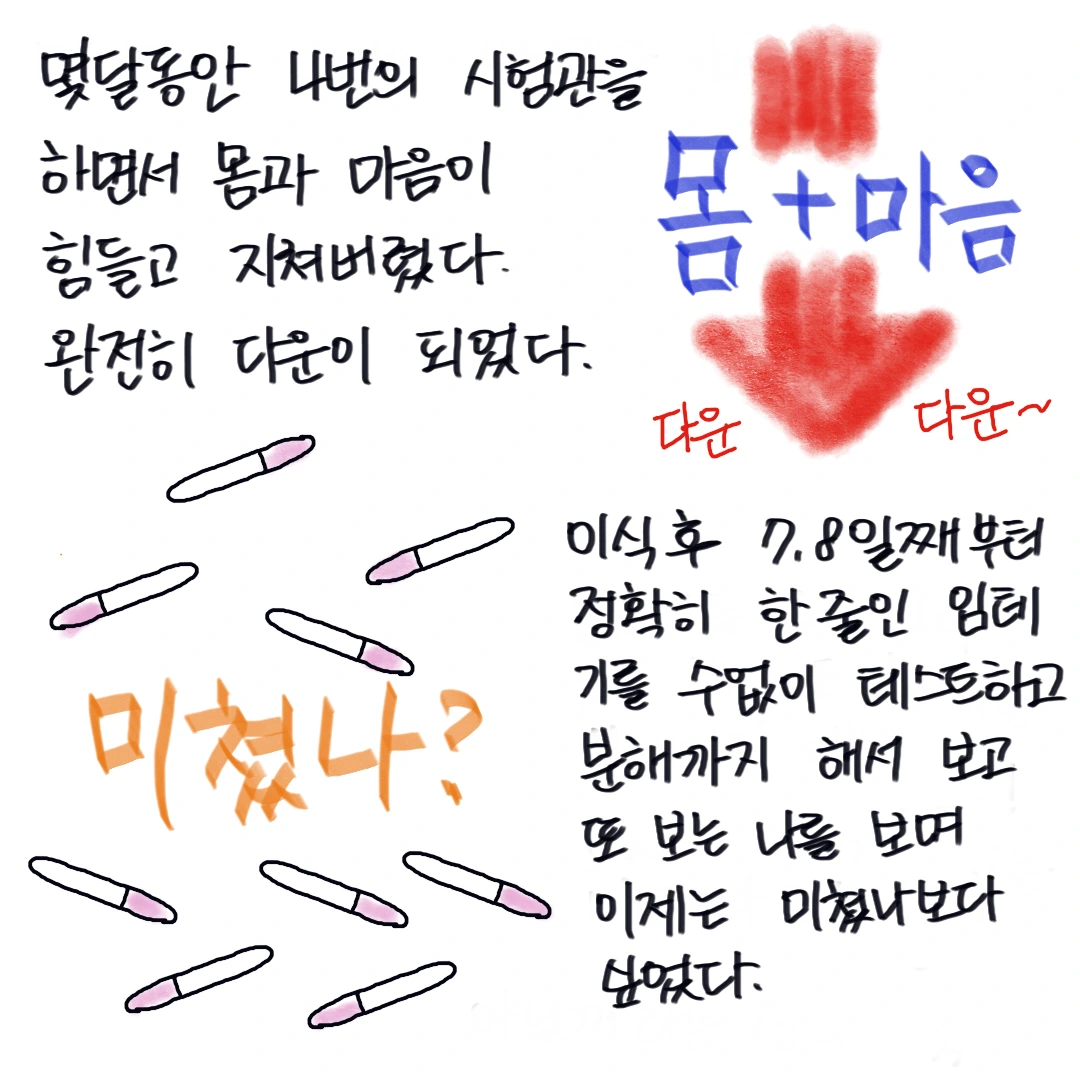 몇달동안 4번의 시험관을
하면서 몸과 마음이
힘들고 지쳐버렸다.
완전히 다운이 되었다.
몸+마음
다운 다운~
이식후 7.8일째부터
정확히 한줄인 임테
기를 수없이 테스트하고
분해까지 해서 보고
또 보는 나를 보며
이제는 미쳤나보다
싶었다.
미쳤나?